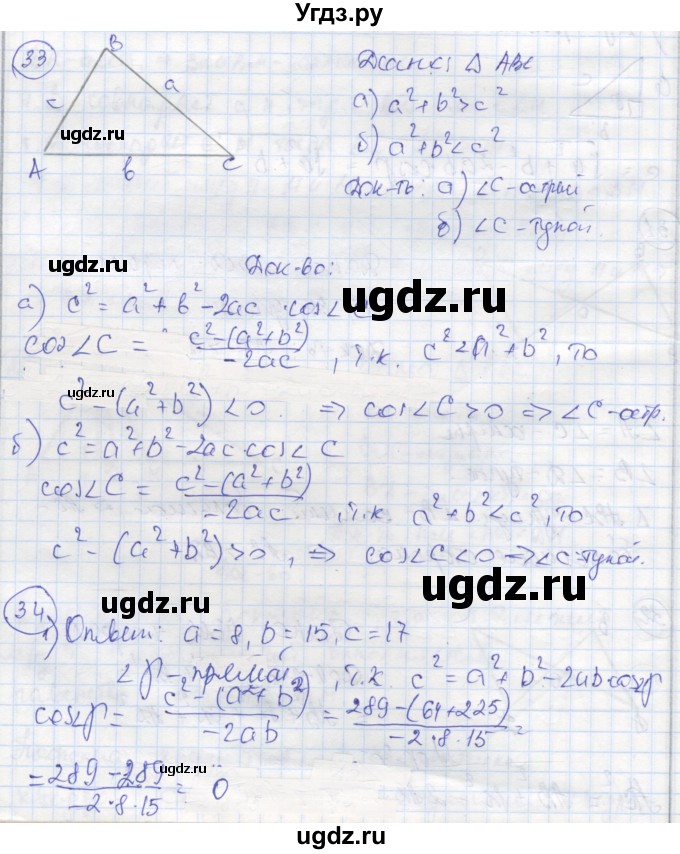 Угдз.ру
33
B
c
a
A
b
C
ugdz.ru
Дано: Δ ABC
а) a²+b²>c²
б) a²+b²<c²
Док-ть: а) ∠C-острый
б) ∠C-тупой.
ugdz.ru
Док-во:
ugdz.ru
а) c² = a²+b²-2ac·cos∠C
cos∠C = (c²-(a²+b²))/(-2ac), т.к. c²<a²+b², то
ugdz.ru
c²-(a²+b²)<0. ⇒ cos∠C>0 ⇒ ∠C-остр.
б) c²=a²+b²-2ac cos∠C
ugdz.ru
cos∠C = (c²-(a²+b²))/(-2ac), т.к. a²+b²<c², то
c²-(a²+b²)>0, ⇒ cos∠C<0 ⇒ ∠C-тупой.
ugdz.ru
ugdz.ru
34
1) Ответ: a=8, b=15, c=17
ugdz.ru
∠β-прямой, т.к. c²=a²+b²-2ab cosβ
cos∠β = (c²-(a²+b²))/(-2ab) = (289-(64+225))/(-2·8·15) =
ugdz.ru
= (289-289)/(-2·8·15) = 0
ugdz.ru
ugdz.ru